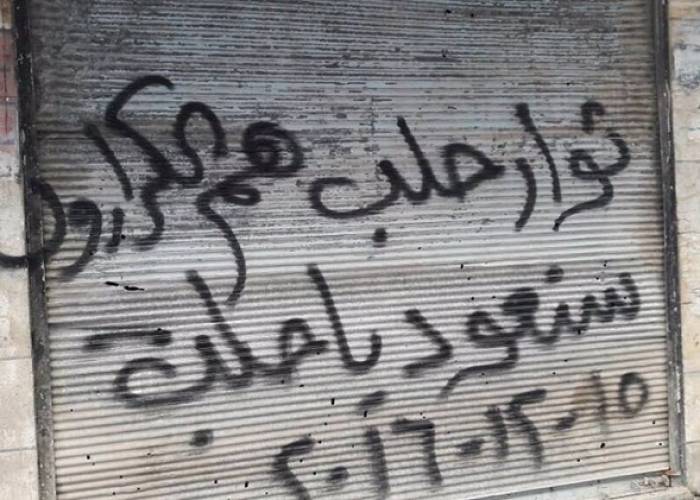 ثوار حلب هم الكرارون
سنعود يا حلب
٢٠١٦-١٢-١٥